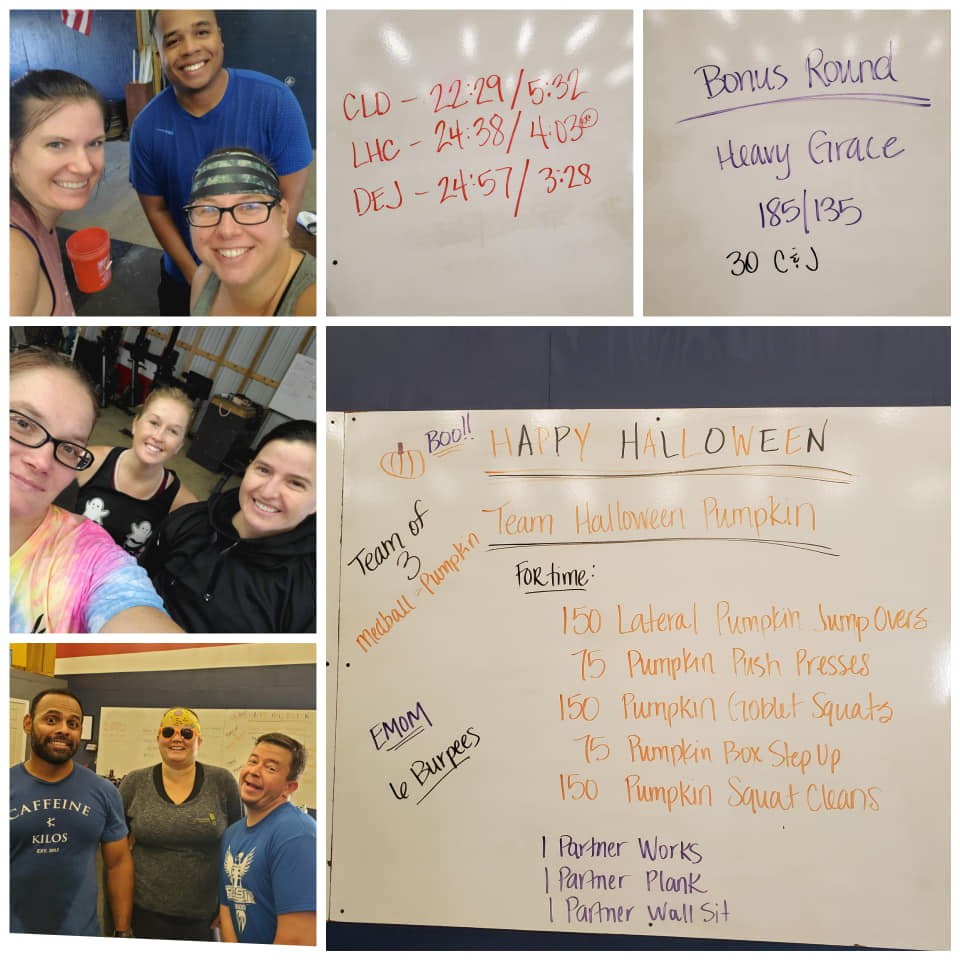 CLD - 22:29/5:32
LHC - 24:38/4:03
DEJ - 24:57/3:28
Bonus Round
Heavy Grace
185/135
30 C & J
BOO!!
HAPPY HALLOWEEN
Team of
3
Medball = Pumpkin
Team Halloween Pumpkin
For time:
150 Lateral Pumpkin Jump Overs
75 Pumpkin Push Presses
150 Pumpkin Goblet Squats
75 Pumpkin Box Step Up
150 Pumpkin Squat Cleans
EMOM
6 Burpees
1 Partner Works
1 Partner Plank
1 Partner Wall Sit
CAFFEINE
&
KILOS
HAPPY HALLOWEEN